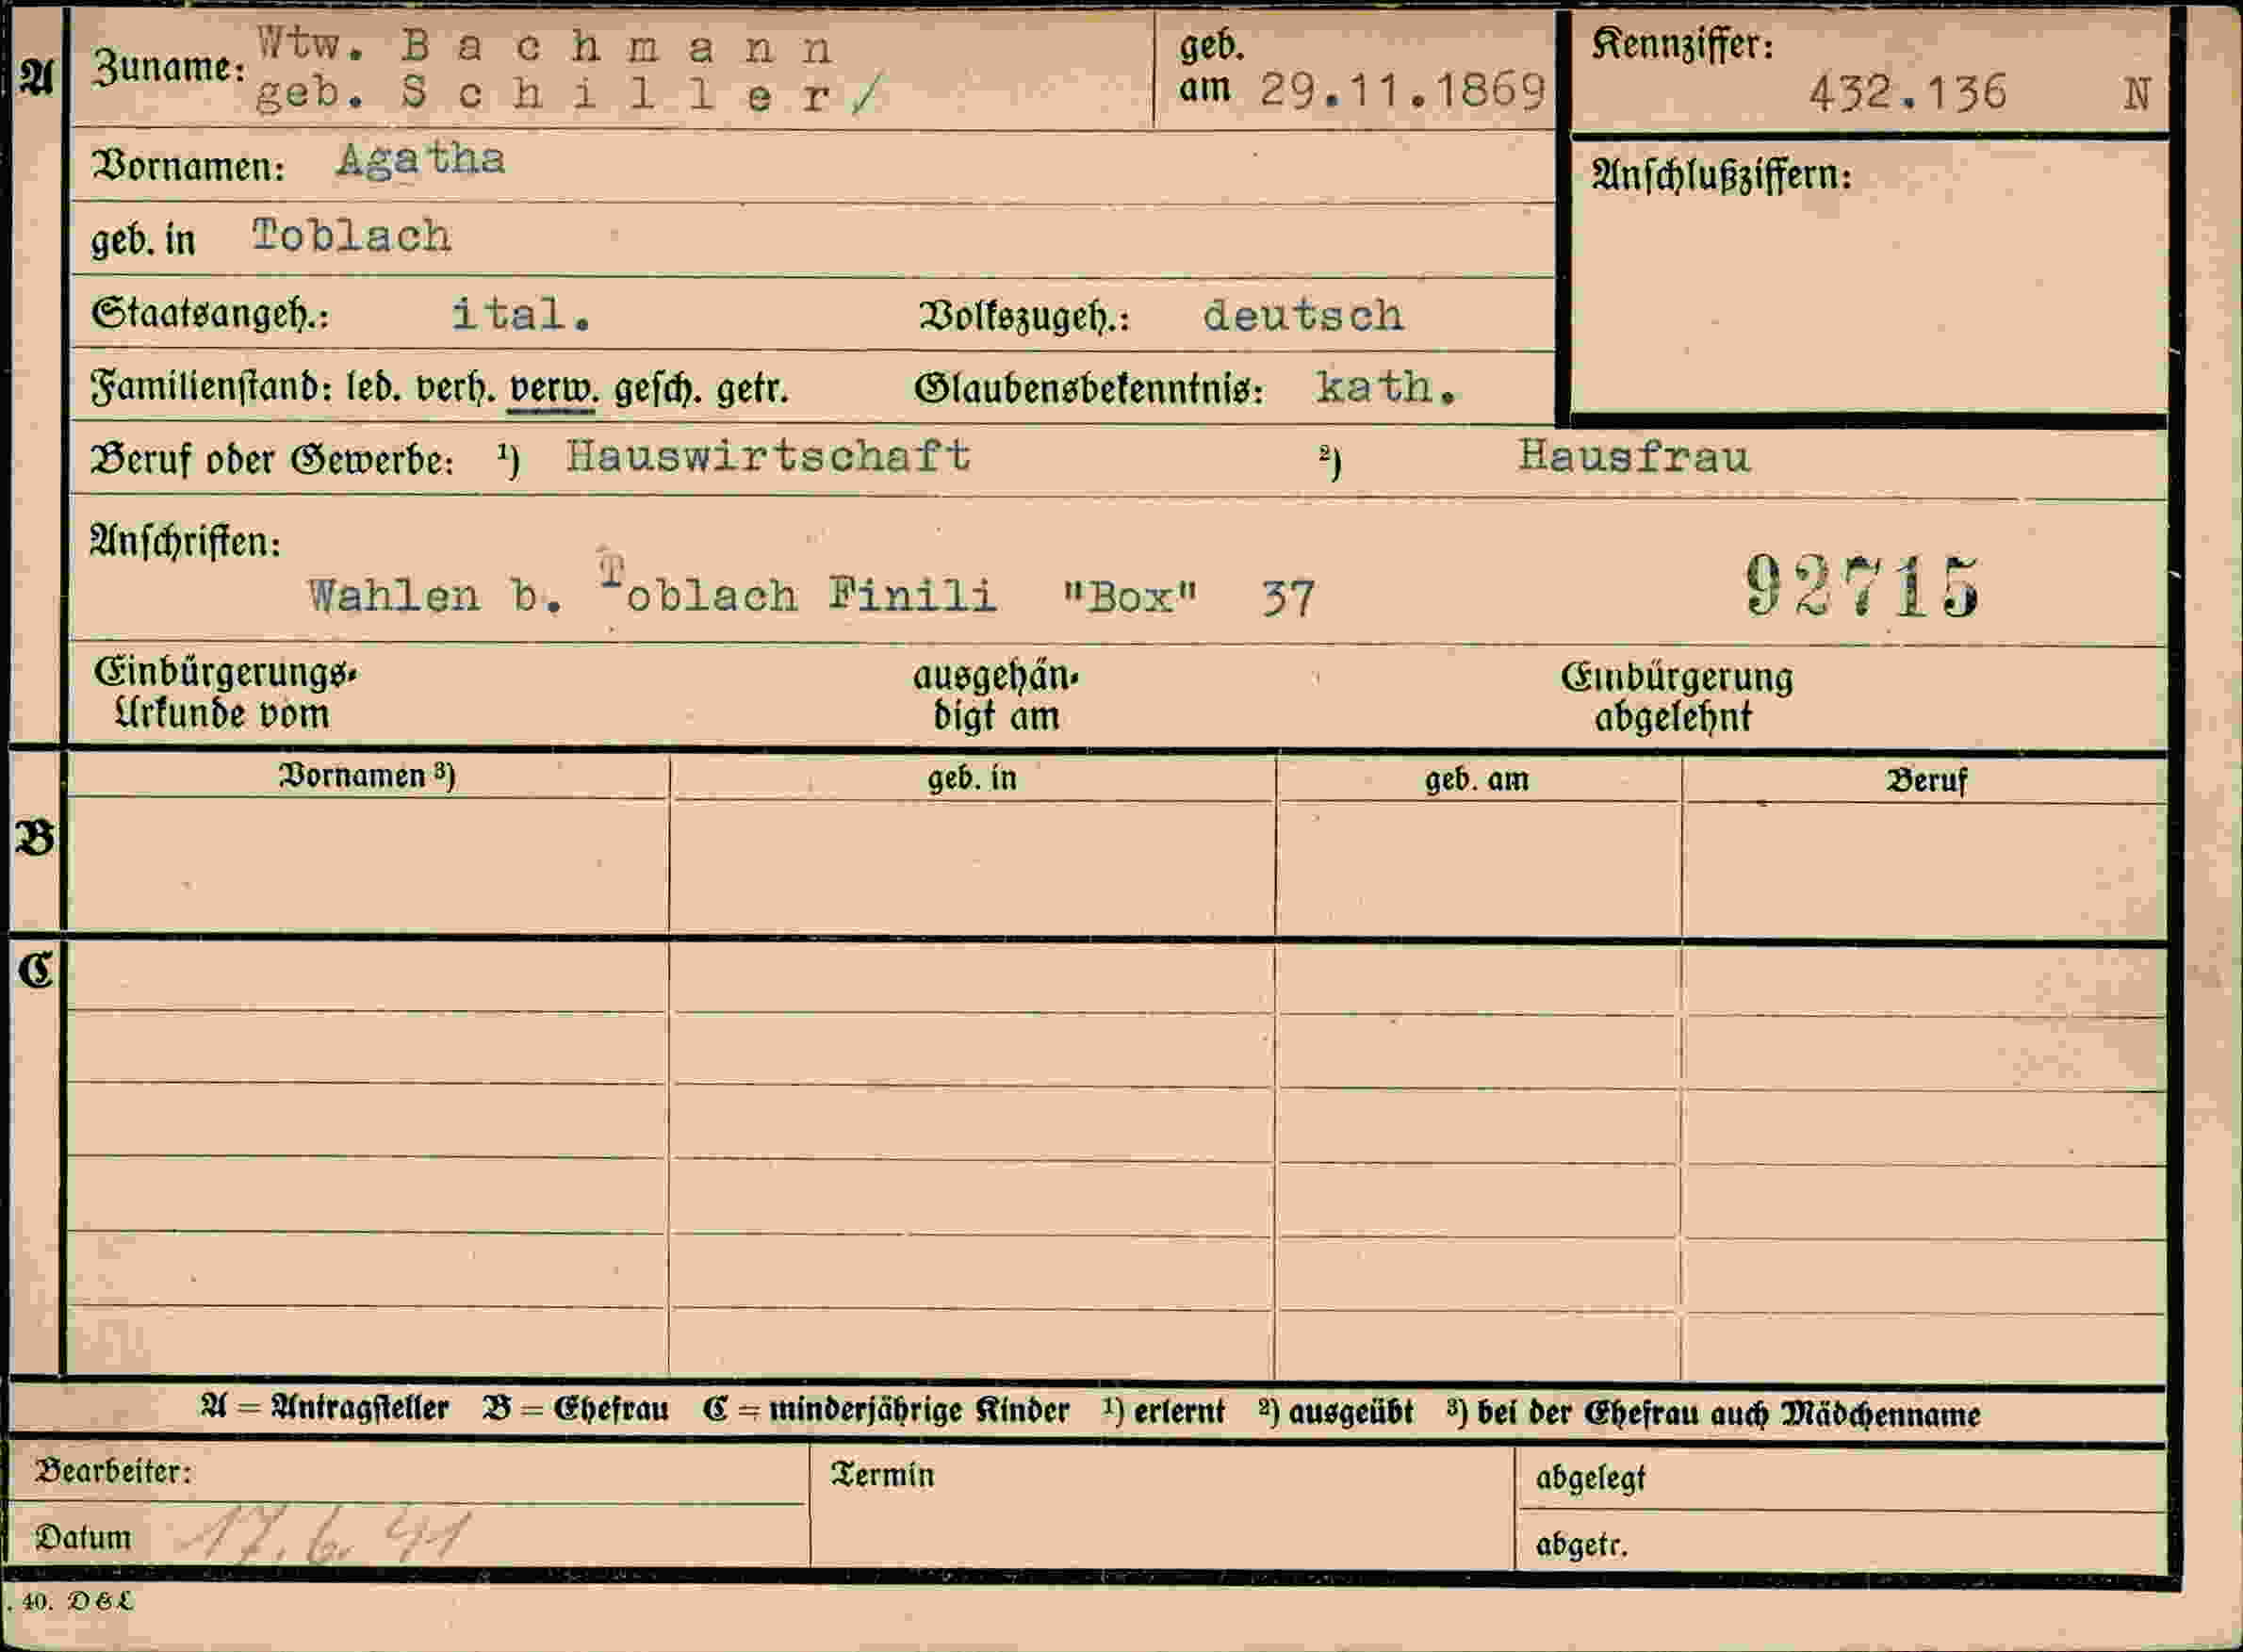 A
Zuname: Wtw. B a c h m a n n
geb. S c h i l l e r /
geb. am 29.11.1869
Kennziffer:
432.136 N
Vornamen: Agatha
Anschlußziffern:
geb. in Toblach
Staatsangeh.: ital. Volkszugeh.: deutsch
Familienstand: led. verh. verw. gesch. getr. Glaubensbekenntnis: kath.
Beruf oder Gewerbe: ¹) Hauswirtschaft ²) Hausfrau
Anschriften:
Wahlen b. Toblach Finili "Box" 37 92715
Einbürgerungs- ausgehän- Einbürgerung
Urkunde vom digt am abgelehnt
Vornamen ³) geb. in geb. am Beruf
B
C
A = Antragsteller B = Ehefrau C = minderjährige Kinder ¹) erlernt ²) ausgeübt ³) bei der Ehefrau auch Mädchenname
Bearbeiter: Termin abgelegt
Datum 17.6.41 abgetr.
. 40. D & L